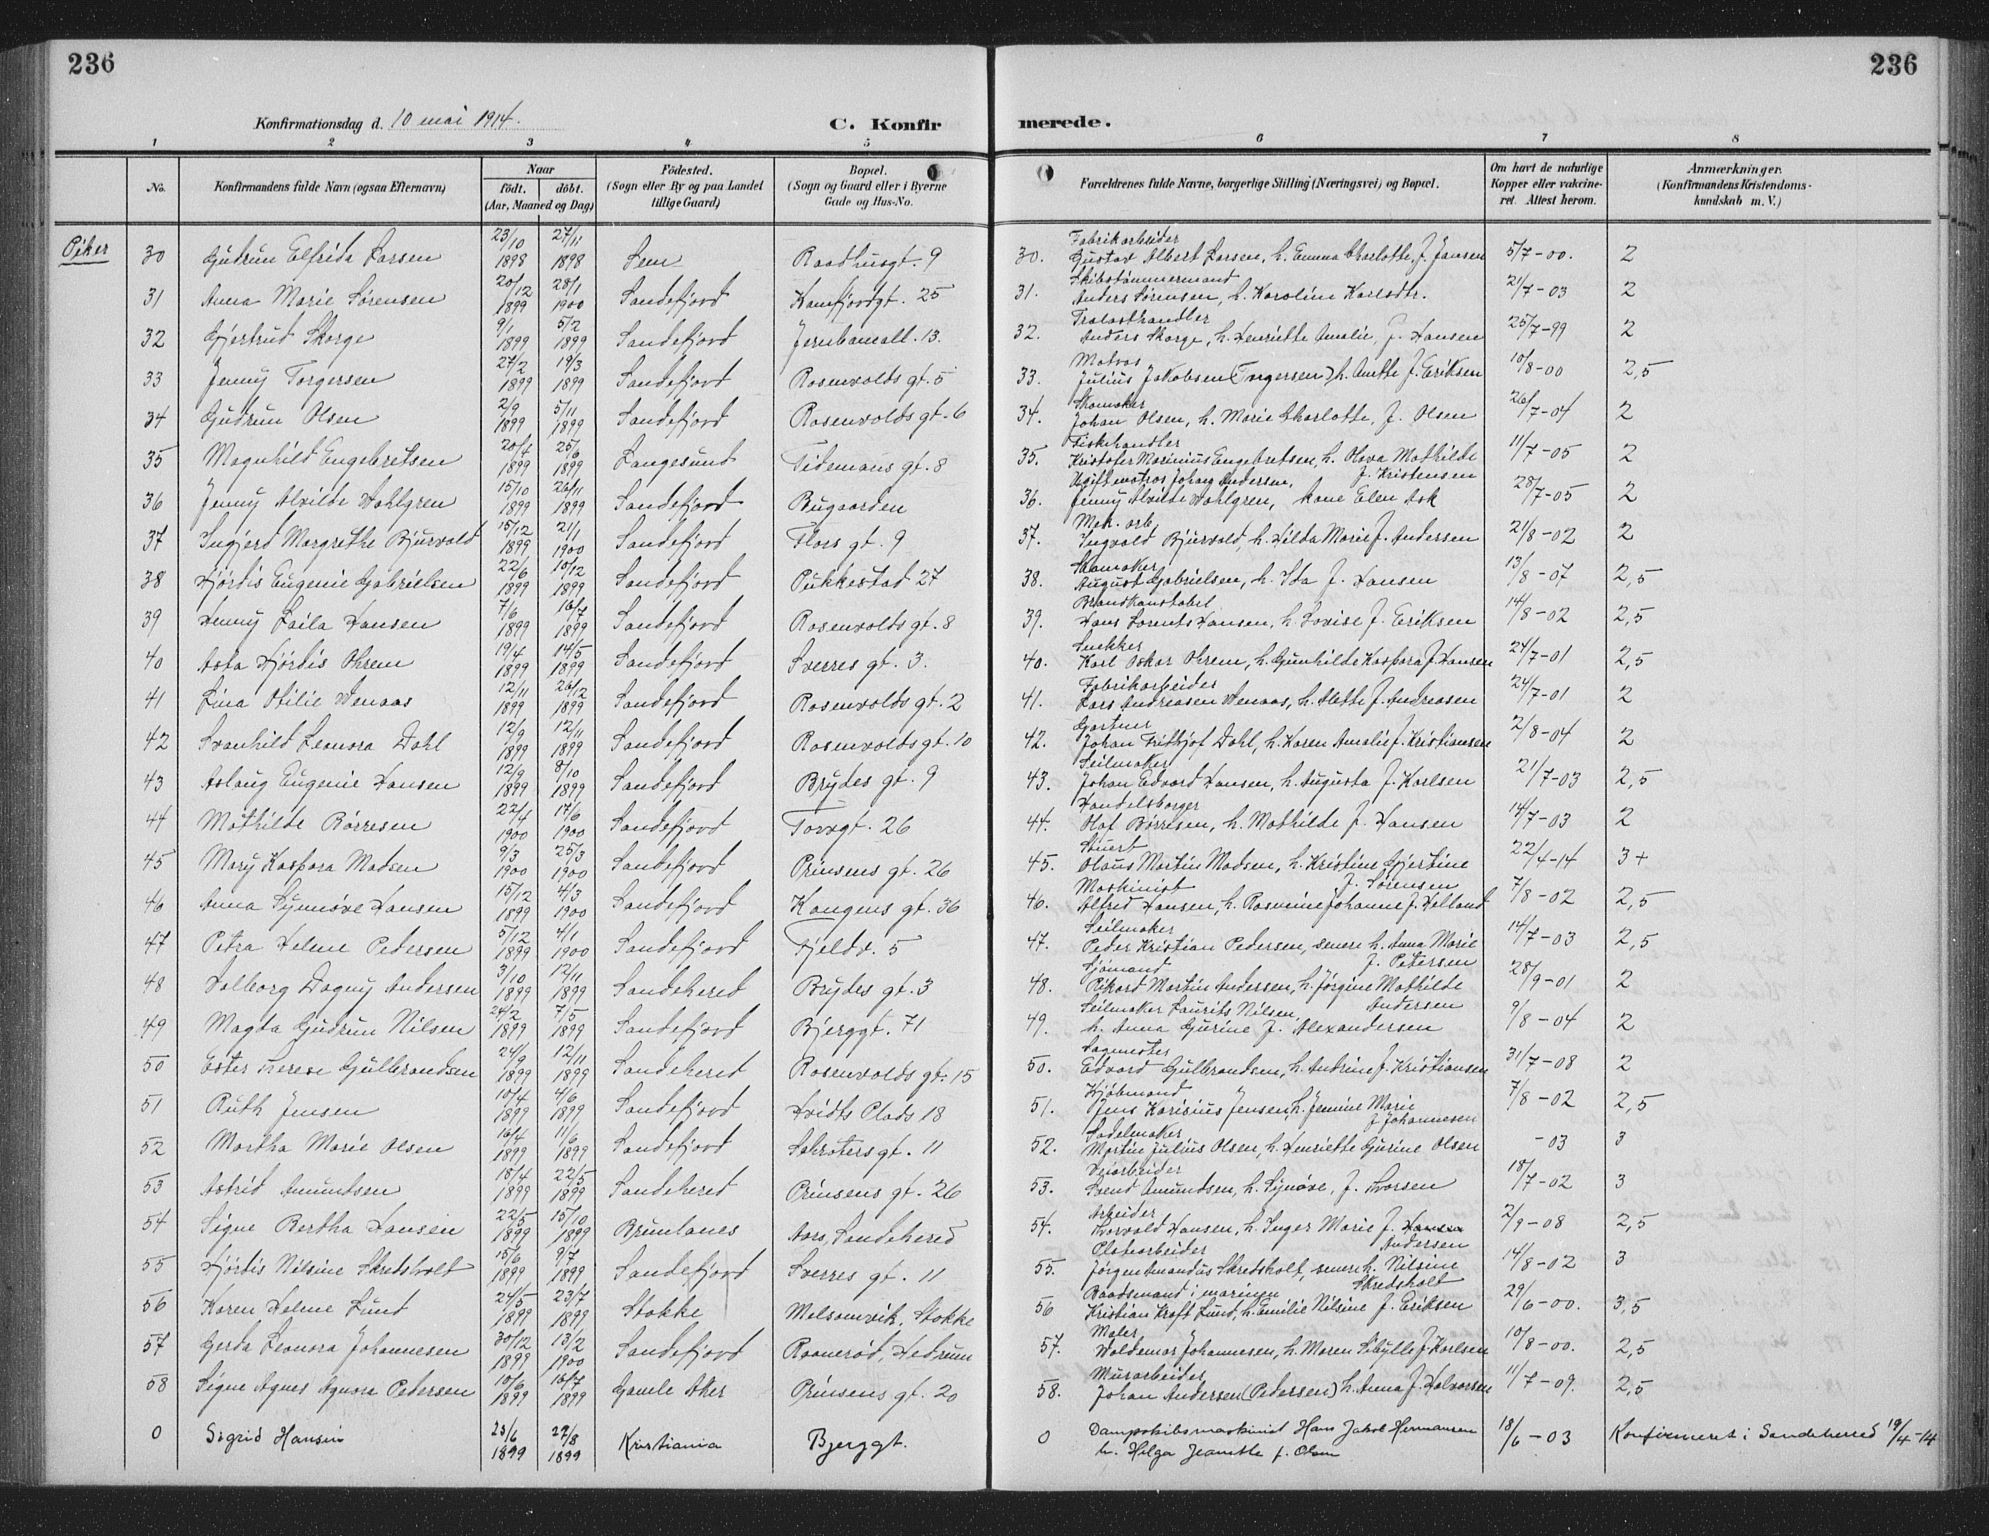 236
236
Konfirmationsdag d. 10 mai 1914.
C. Konfirmerede.
1 2 3 4 5 6 7 8
No.
Konfirmandens fulde Navn (ogsaa Efternavn)
Naar
födt. döbt.
(Aar, Maaned og Dag)
Födested.
(Sogn eller By og paa Landet
tillige Gaard)
Bopæl.
(Sogn og Gaard eller i Byerne
Gade og Hus-No.
Forældrenes fulde Navne, borgerlige Stilling (Næringsvei) og Bopæl.
Om havt de naturlige
Kopper eller vakcine-
ret. Attest herom.
Anmærkninger.
(Konfirmandens Kristendoms-
kundskab m. V.)
Piker
30 Gudrun Elfrida Larsen 23/10 1898 27/11 1898 Sem Raadhusgt. 9 30. Fabrikarbeider Gustav Albert Larsen, h. Emma Charlotte, f. Jansen 5/7-00. 2
31 Anna Marie Sørensen 20/12 1899 28/1 1900 Sandefjord Kamfjordgt. 25 31. Skibstømmermand Anders Sørensen, h. Karoline Karlsdtr. 21/7-03 2
32 Gjertrud Skorge 9/1 1899 5/2 1899 Sandefjord Jernbaneall. 13. 32. Trælasthandler Anders Skorge, h. Henriette Amalie, f. Hansen 25/7-99 2
33 Jenny Torgersen 27/2 1899 19/3 1899 Sandefjord Rosenvolds gt. 5 33. Matros Julius Jakobsen (Torgersen) h. Anette f. Eriksen 10/8-00 2,5
34 Gudrun Olsen 2/9 1899 5/11 1899 Sandefjord Rosenvolds gt. 6 34. Skomaker Johan Olsen, h. Marie Charlotte, f. Olsen 26/7-04 2
35 Magnhild Engebretsen 20/4 1899 25/6 1899 Langesund Tidemans gt. 8 35. Fiskehandler Kristofer Marinius Engebretsen, h. Olava Mathilde f. Kristensen 11/7-05 2
36 Jenny Alvilde Dahlgren 15/10 1899 26/11 1899 Sandefjord Bugaarden 36. Ugift matros Johan Andersen, Jenny Alvilde Dahlgren, Ask 28/7-05 2
37 Ingjerd Margrethe Bjurvold 15/12 1899 21/1 1900 Sandefjord Flors gt. 9 37. Mek. arb. Ingvald Bjurvold, h. Hilda Marie f. Andersen 21/8-02 2
38 Hjördis Eugenie Gabrielsen 22/6 1899 10/12 1899 Sandefjord Pukkestad 27 38. Skomaker August Gabrielsen, h. Ida f. Hansen 13/8-07 2,5
39 Henny Laila Hansen 7/6 1899 16/7 1899 Sandefjord Rosenvolds gt. 8 39. Brandkonstabel Hans Lorents Hansen, h. Lovise f. Eriksen 14/8-02 2,5
40 Asta Hjördis Ohrem 19/4 1899 14/5 1899 Sandefjord Sverres gt. 3. 40. Snekker Karl Oskar Ohrem, h. Gunhilde Kaspara f. Hansen 24/7-01 2,5
41 Lina Otilie Wenaas 12/11 1899 26/12 1899 Sandefjord Rosenvolds gt. 2 41. Fabrikarbeider Lars Andreasen Wenaas, h. Alette f. Andreasen 24/7-01 2
42 Svanhild Leonora Dahl 12/9 1899 12/11 1899 Sandefjord Rosenvolds gt. 10 42. Gartner Johan Fritbjof Dahl, h. Karen Amalie f. Kristiansen 2/8-04 2
43 Aslaug Eugenie Hansen 12/9 1899 8/10 1899 Sandefjord Brydes gt. 9 43. Seilmaker Johan Edvard Hansen, h. Augusta f. Karlsen 21/7-03 2,5
44 Mathilde Børresen 22/4 1900 17/6 1900 Sandefjord Torvgt. 26 44. Handelsborger Olaf Børresen, h. Mathilde f. Hansen 14/7-03 2
45 Mary Kaspara Madsen 9/3 1900 25/3 1900 Sandefjord Prinsens gt. 26 45. Stuert Olaus Martin Madsen, h. Kristine Gjertine f. Sørensen 22/4-14 3+
46 Anna Synnøve Hansen 15/12 1899 4/3 1900 Sandefjord Kongens gt. 36 46. Maskinist Alfred Hansen, h. Johanne f. Helland 7/8-02 2,5
47 Petra Helene Pedersen 5/12 1899 4/1 1900 Sandefjord Fjeldv. 5 47. Seilmaker Peder Kristian Pedersen, senere h. Anna Marie f. Petersen 14/7-03 2,5
48 Valborg Dagny Andersen 3/10 1899 12/11 1899 Sandeherred Brydes gt. 3 48. Sjømand Rikard Martin Andersen, h. Jørgine Mathilde Andersen 28/9-01 2
49 Magda Gudrun Nilsen 24/2 1899 7/5 1899 Sandefjord Bjerggt. 71 49. Seilmaker Laurits Nilsen, h. Anna Gurine f. Alexandersen 9/8-04 2
50 Ester Therese Gulbrandsen 24/9 1899 12/11 1899 Sandeherred Rosenvolds gt. 15 50. Sagmester Edvard Gulbrandsen, h. Andrine f. Kristiansen 31/7-08 2
51 Ruth Jensen 10/4 1899 4/6 1899 Sandefjord Hvidts Plads 18 51. Kjøbmand Jens Jensen, h. Jennine Marie f. Johannesen 7/8-02 2,5
52 Martha Marie Olsen 16/4 1899 11/6 1899 Sandefjord Schrøters gt. 11 52. Sadelmaker Martin Julius Olsen, h. Henriette Gurine Olsen -03 3
53 Astrid Amundsen 18/4 1899 22/5 1899 Sandeherred Prinsens gt. 26 53. Veiarbeider Svend Amundsen, h. Synøve, f. Ivorsen 18/7-02 3
54 Signe Bertha Hansen 22/5 1899 15/10 1899 Brunlanes Aars, Sandeherred 54. Arbeider Thorvald Hansen, h. Inger Marie f. Hansen Andersen 2/9-08 2,5
55 Hjördis Nilsine Skredsholt 15/6 1899 9/7 1899 Sandefjord Sverres gt. 11 55. Platearbeider Jørgen Amandus Skredsholt, senere h. Nilsine Skredsholt 14/8-02 3
56 Karen Helene Lund 24/5 1899 23/7 1899 Stokke Melsomvik, Stokke 56 Baadsmand i marinen Kristian Kraft Lund, h. Emilie Nilsine f. Eriksen 29/6-00. 3,5
57 Gerda Leonora Johannesen 30/12 1899 13/2 1900 Sandefjord Raanerød, Hedrum 57. Maler Waldemar Johannesen, h. Maren Sibylle f. Karlsen 10/8-00. 2,5
58 Signe Agnes Agnora Pedersen 10/6 1899 16/7 1899 Gamle Aker Prinsens gt. 20 58. Murarbeider Johan Andersen (Pedersen) h. Anna f. Halvorsen 11/7-09. 2,5
0 Sigrid Hansen 25/6 1899 27/8 1899 Kristiania Bjerggt. 0 Dampskibsmaskinist Hans Jakob Hermansen h. Helga Jeanette f. Olsen 18/6-03 Konfirmeret i Sandeherred 19/4-14